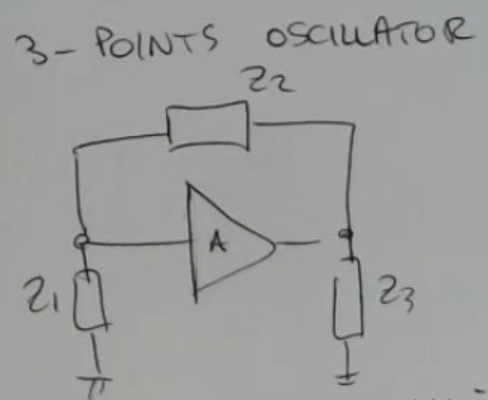 3-POINTS OSCILLATOR
Z2
A
Z1
Z3